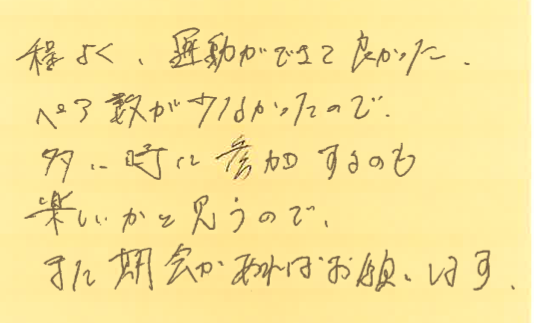 程よく、運動ができて良かった.
ペア数が少なかったので.
多い時に参加するのも
楽しいかと思うので、
また期会があればお願いします.